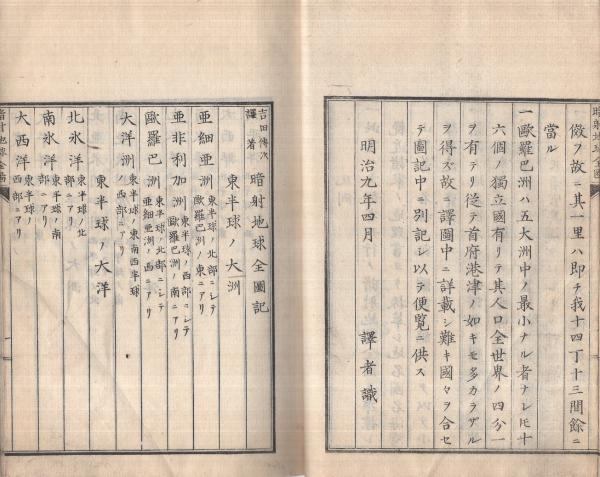 倣ヲ故ニ其一里ハ即チ我十四丁十三間餘ニ
當ル
一歐羅巴洲ハ五大洲中ノ最小ナル者ナレ𪜈十
六個ノ獨立國有リテ其人口全世界ノ四分一
ヲ有テリ從テ首府港津ノ如キモ多カラザル
ヲ得ズ故ニ譯圖中ニ詳載シ難キ國々ヲ合セ
テ圖記中ニ別記シ以テ便覧ニ供ス
明治九年四月
譯者識
暗射地球全圖記
吉田傳次
譯著
東半球ノ大洲
亜細亜洲 東半球ノ北部ニシテ
歐羅巴洲ノ東ニアリ
亜非利加洲 東半球ノ西部ニシテ
歐羅巴洲ノ南ニアリ
歐羅巴洲 東半球ノ北部ニシテ
亜細亜洲ノ西ニアリ
大洋洲 東半球ノ東南西半球
ノ西部ニアリ
東半球ノ大洋
北氷洋 東半球ノ北
部ニアリ
南氷洋 東半球ノ南
部ニアリ
大西洋 東半球ノ
西部ニアリ